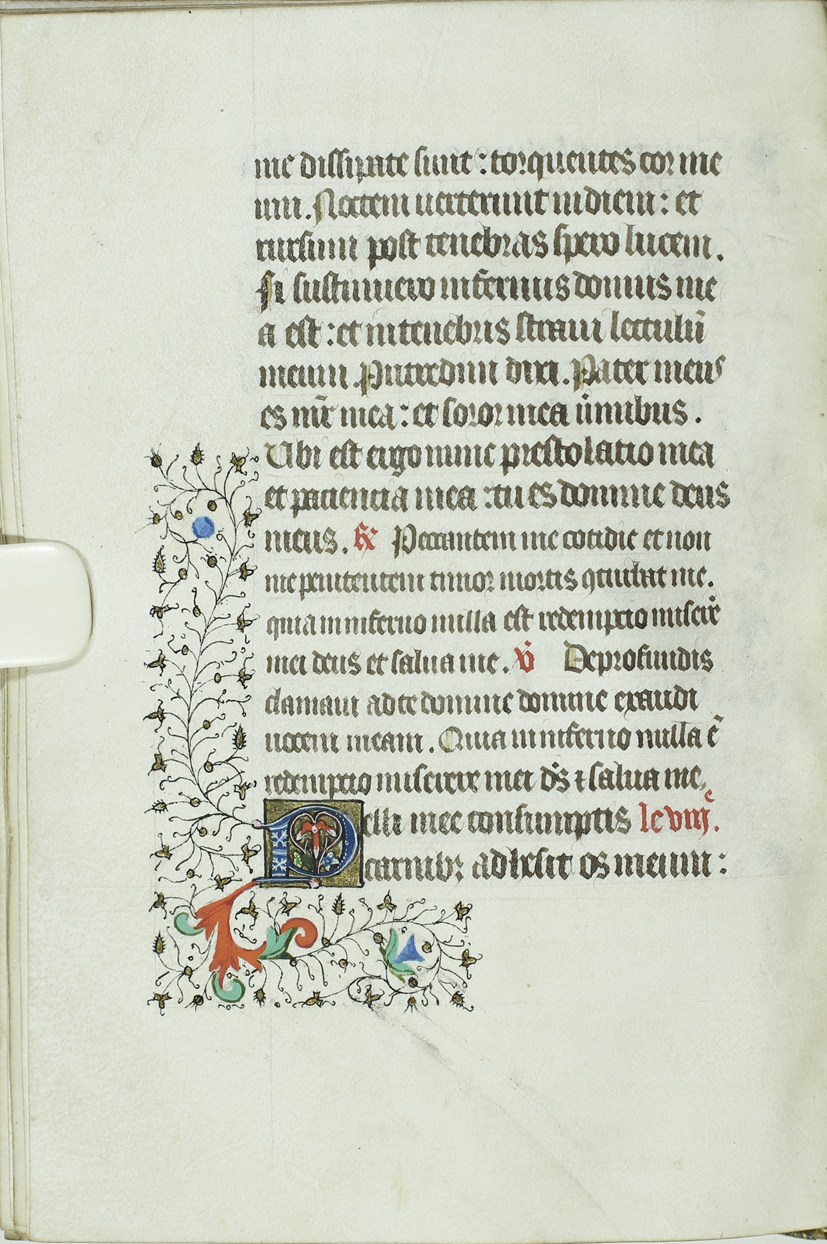 me dissipate sunt : torquentes cor me
um. Noctem uerterunt in diem : et
rursum post tenebras spero lucem.
Si sustinuero infernus domus me
a est : et in tenebris straui lectulū
meum. Putredini dixi. Pater meus
es mr̄ mea : et soror mea u̇mibus.
Ubi est ergo nunc prestolatio mea
et paciencia mea : tu es domine deus
meus. ℟ Peccantem me cotidie et non
me penitentem timor mortis ꝯturbat me.
quia in inferno nulla est redempcio misere
mei deus et salua me. v̇ De profundis
clamaui ad te domine domine exaudi
uocem meam. Quia in inferno nulla ē
redempcio miserere mei ds̄ ⁊ salua me.
Pelli mee consumptis le viijͤ.
carnibꝫ adhesit os meum :